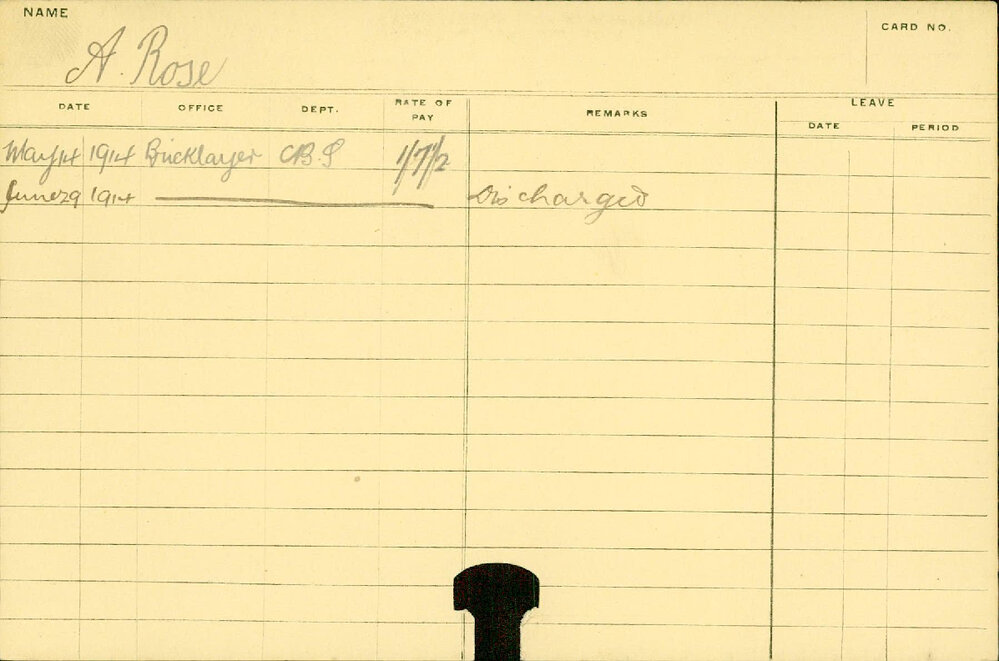 NAME
CARD NO.
A. Rose
DATE OFFICE DEPT. RATE OF PAY REMARKS LEAVE
DATE PERIOD
May 14 1914 Bricklayer C.B.S 1/7/2
June 29 1914 Discharged